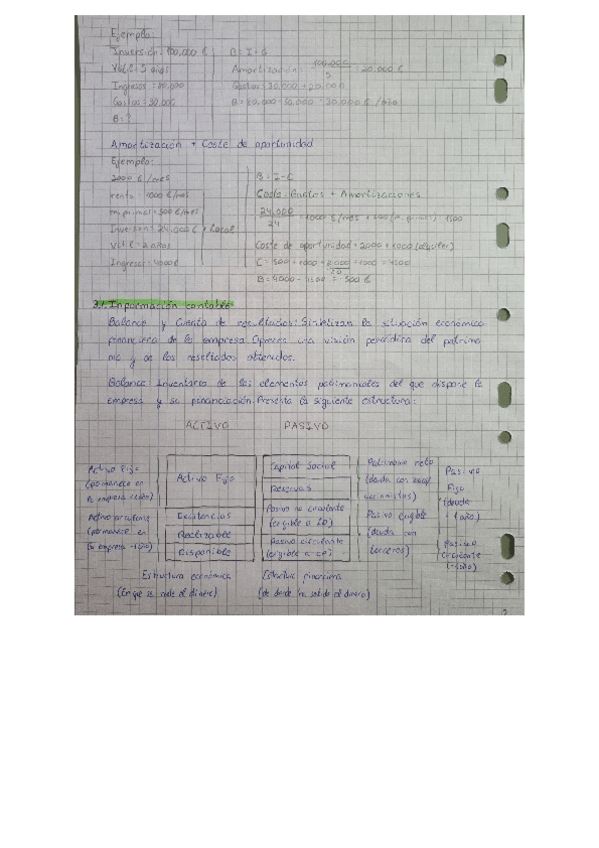 Ejemplo:
Inversión = 100.000 € B = I - G
Vútil = 5 años Amortización: 100.000 / 5 = 20.000 €
Ingresos = 80.000 Gastos = 30.000 + 20.000
Gastos = 30.000 B = 80.000 - 50.000 = 30.000 € / año
B = ?
Amortización + Coste de oportunidad
Ejemplo:
2000 € / mes B = I - C
renta = 1000 € / mes Coste: Gastos + Amortizaciones
= 500 € / mes 24.000 / 24 = 1000 € / mes + 1500
Inversión = 24.000 € + Local
Vútil = 2 años Coste de oportunidad = 2000 + 1000 (alquiler)
Ingresos = 4000 € C = 500 + 1000 + 2000 + 1000 = 4500
B = 4000 - 4500 = -500 €
3.1. Información contable
Balance y Cuenta de resultados: Sintetizan la situación económico
financiera de la empresa. Ofrecen una visión periódica del patrimo
nio y de los resultados obtenidos.
Balance: Inventario de los elementos patrimoniales del que dispone la
empresa y su financiación. Presenta la siguiente estructura:
ACTIVO PASIVO
Activo Fijo
(permanece en
la empresa +1año)
Activo circulante
(permanece en
la empresa -1año)
Activo Fijo
Existencias
Realizable
Disponible
Capital Social
Reservas
Pasivo no circulante
(exigible a LP)
Pasivo circulante
(exigible a CP)
Patrimonio neto
(deuda con los
accionistas)
Pasivo exigible
(deuda con
terceros)
Pasivo
Fijo
(deuda
+1 año)
Pasivo
circulante
(-1año)
Estructura económica Estructura financiera
(En qué se mete el dinero) (de donde ha salido el dinero)